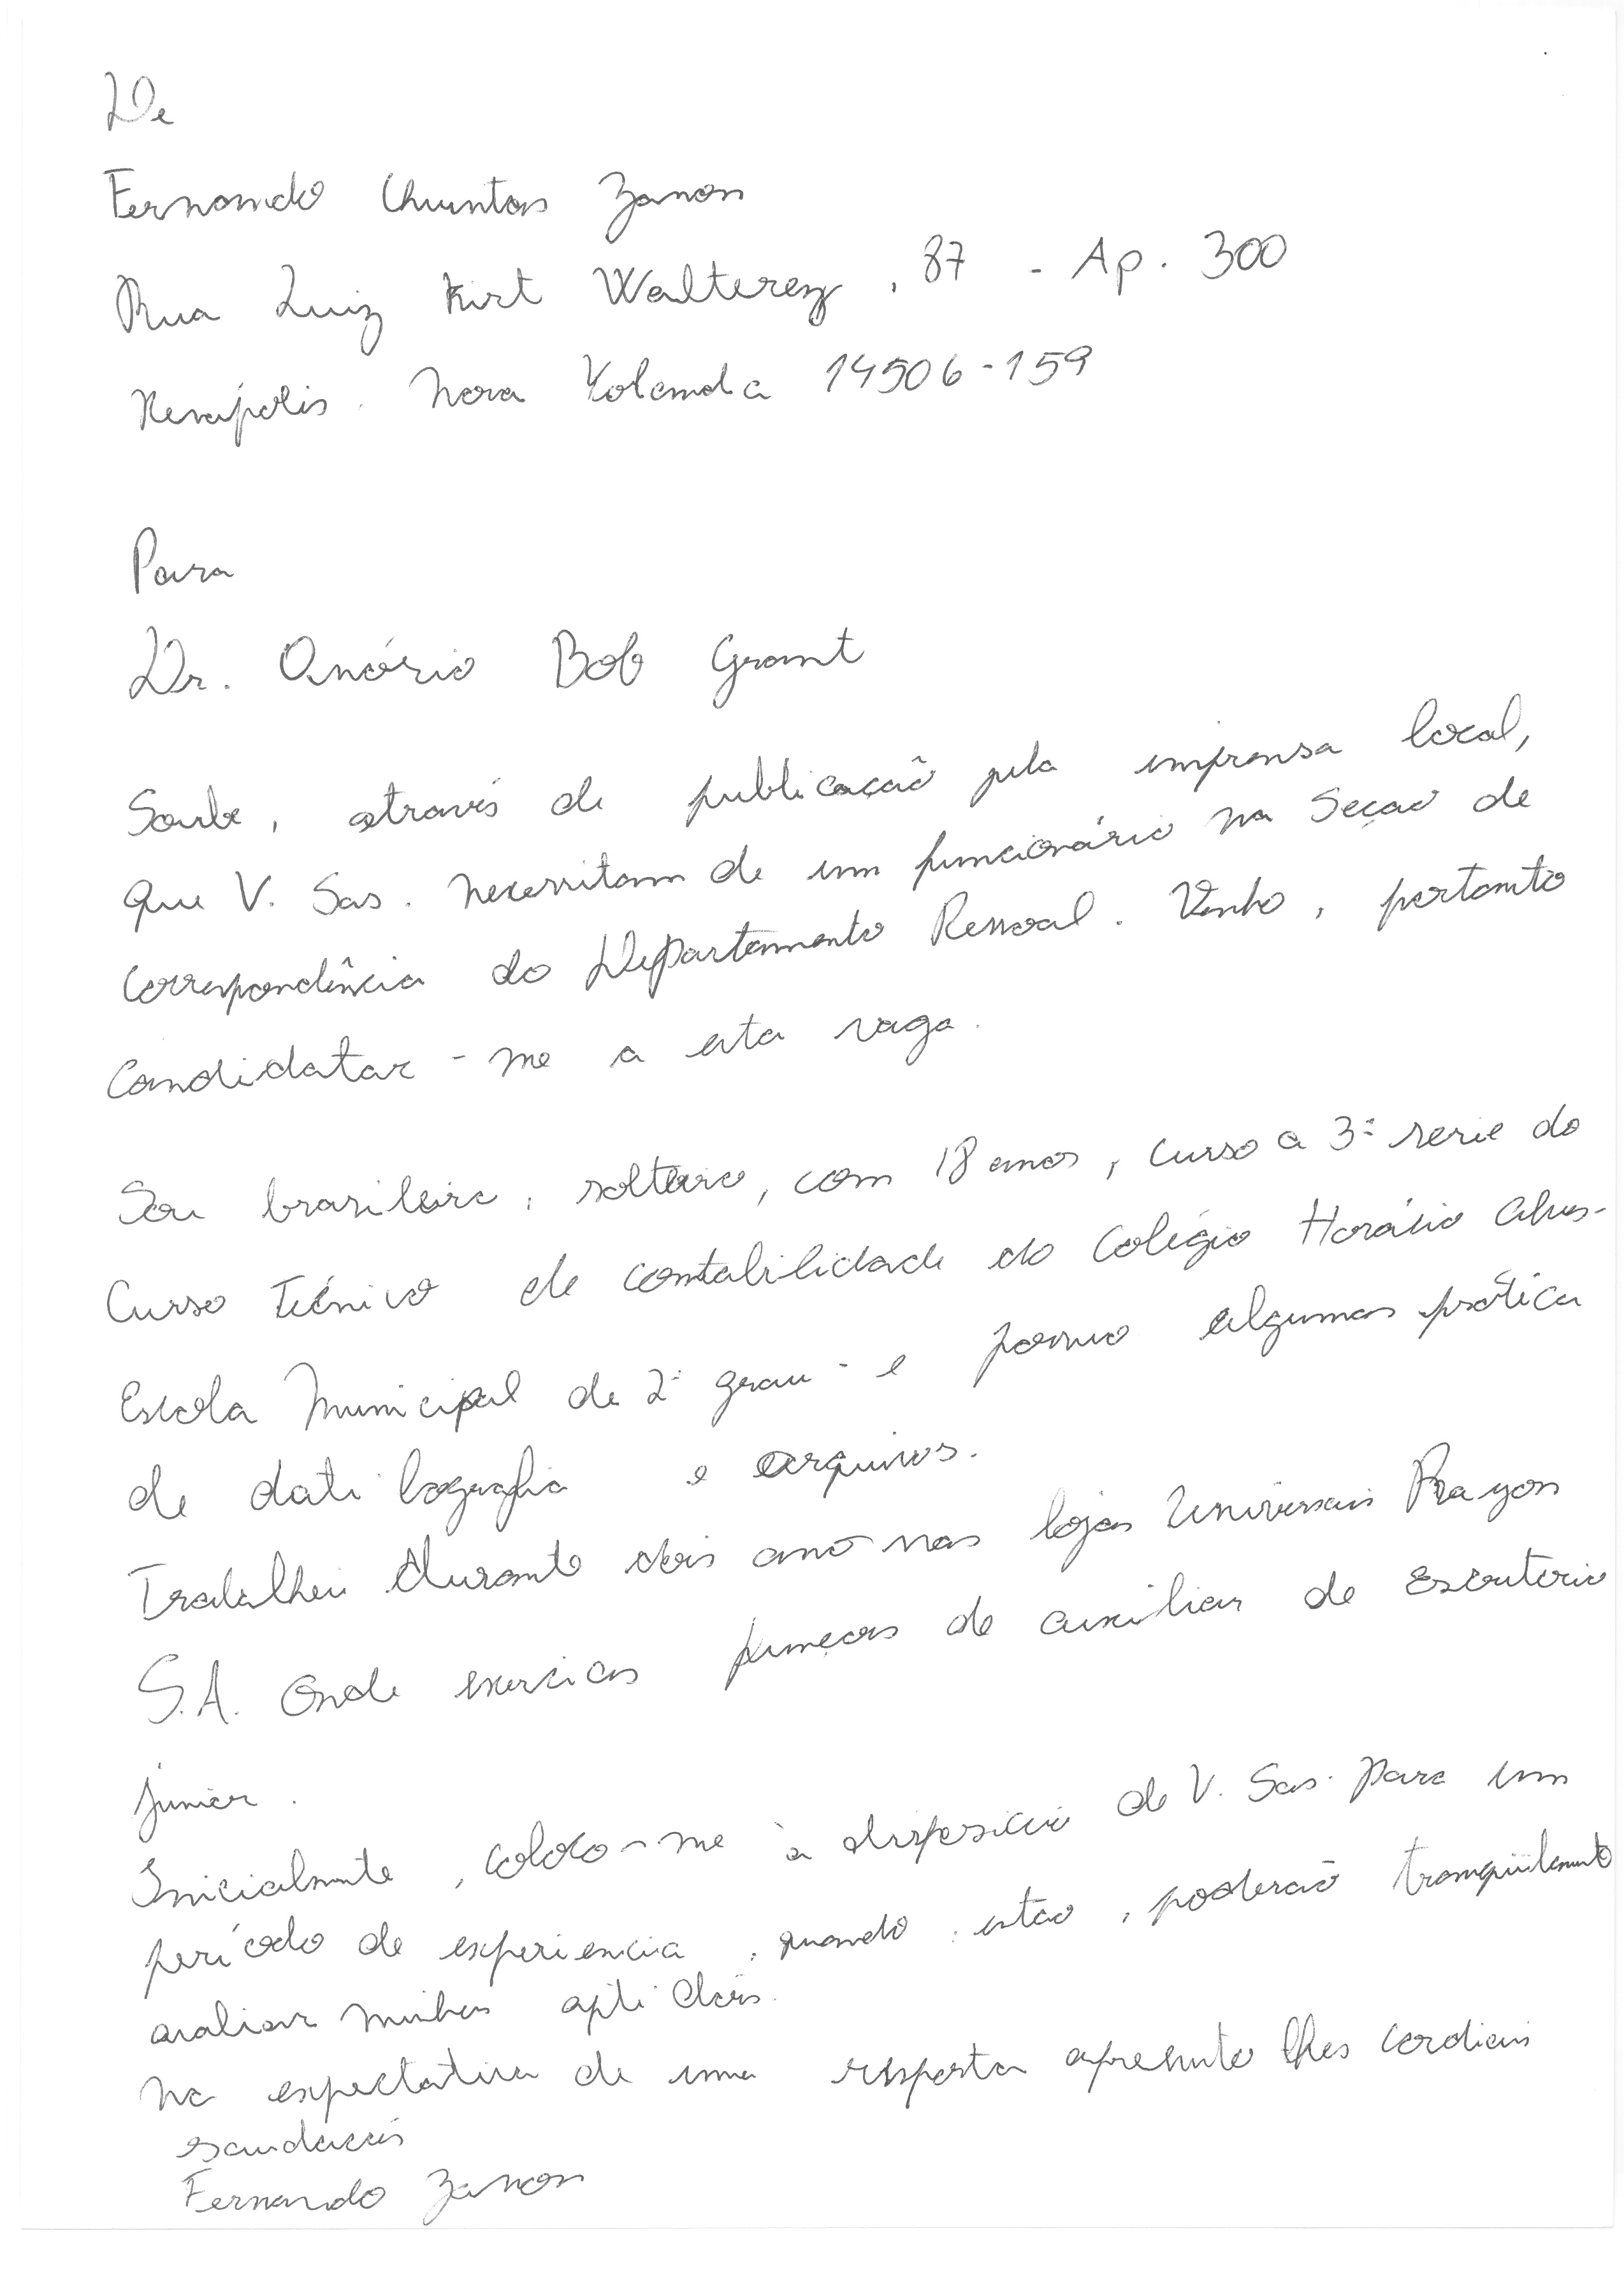 De
Fernando Chuntos Zanon
Rua Luiz Kirt Walterez, 87 - Ap. 300
Nova Yolanda 14506-159
Para
Dr. Onório Bob Grant
Soube, através de publicação pela imprensa local,
que V. Sas. necessitam de um funcionário na Seçao de
correspondência do Departamento Pessoal. Venho, portanto
Candidatar-me a esta vaga.
Sou brasileiro, solteiro, com 18 anos, curso a 3ª serie do
Curso Técnico de contabilidade do Colégio Horácio
Escola Municipal de 2º grau - e possuo algumas prática
de datilografia e arquivos.
Trabalhei durante dois ano nas lojas Universais Rayon
S.A. Onde exercicas funçoes de auxiliar de Escritorio
júnior.
Inicialmente, coloco-me à disposicão de V. Sas. para um
período de experiencia, quando, entao, poderão tranqüilamente
avaliar minhas aptidões.
Na expectativa de uma resposta apresento lhes cordiais
saudacões
Fernando Zanon